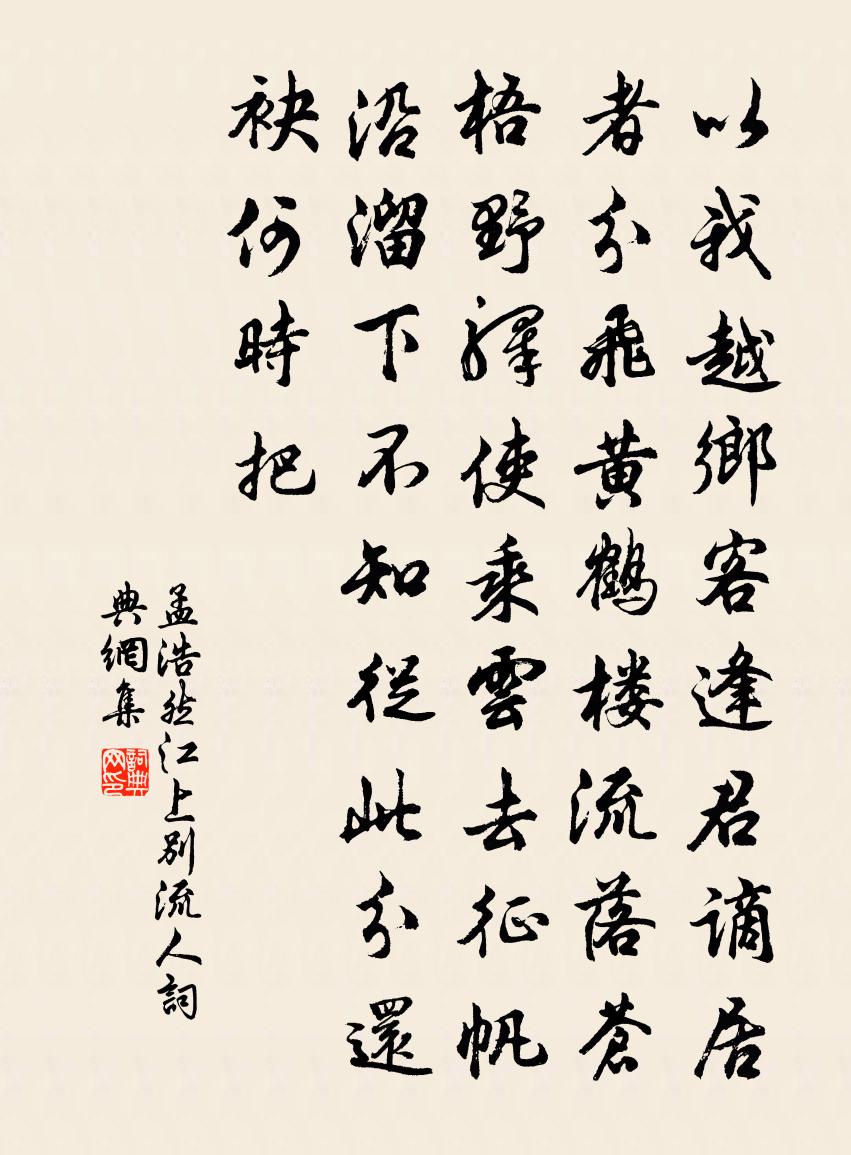 以我越鄉客逢君謫居
者分飛黄鶴楼流落蒼
梧野驛使乘雲去征帆
沿溜下不知從此分還
袂何時把
孟浩然江上別流人詞
典網集
詞典网印